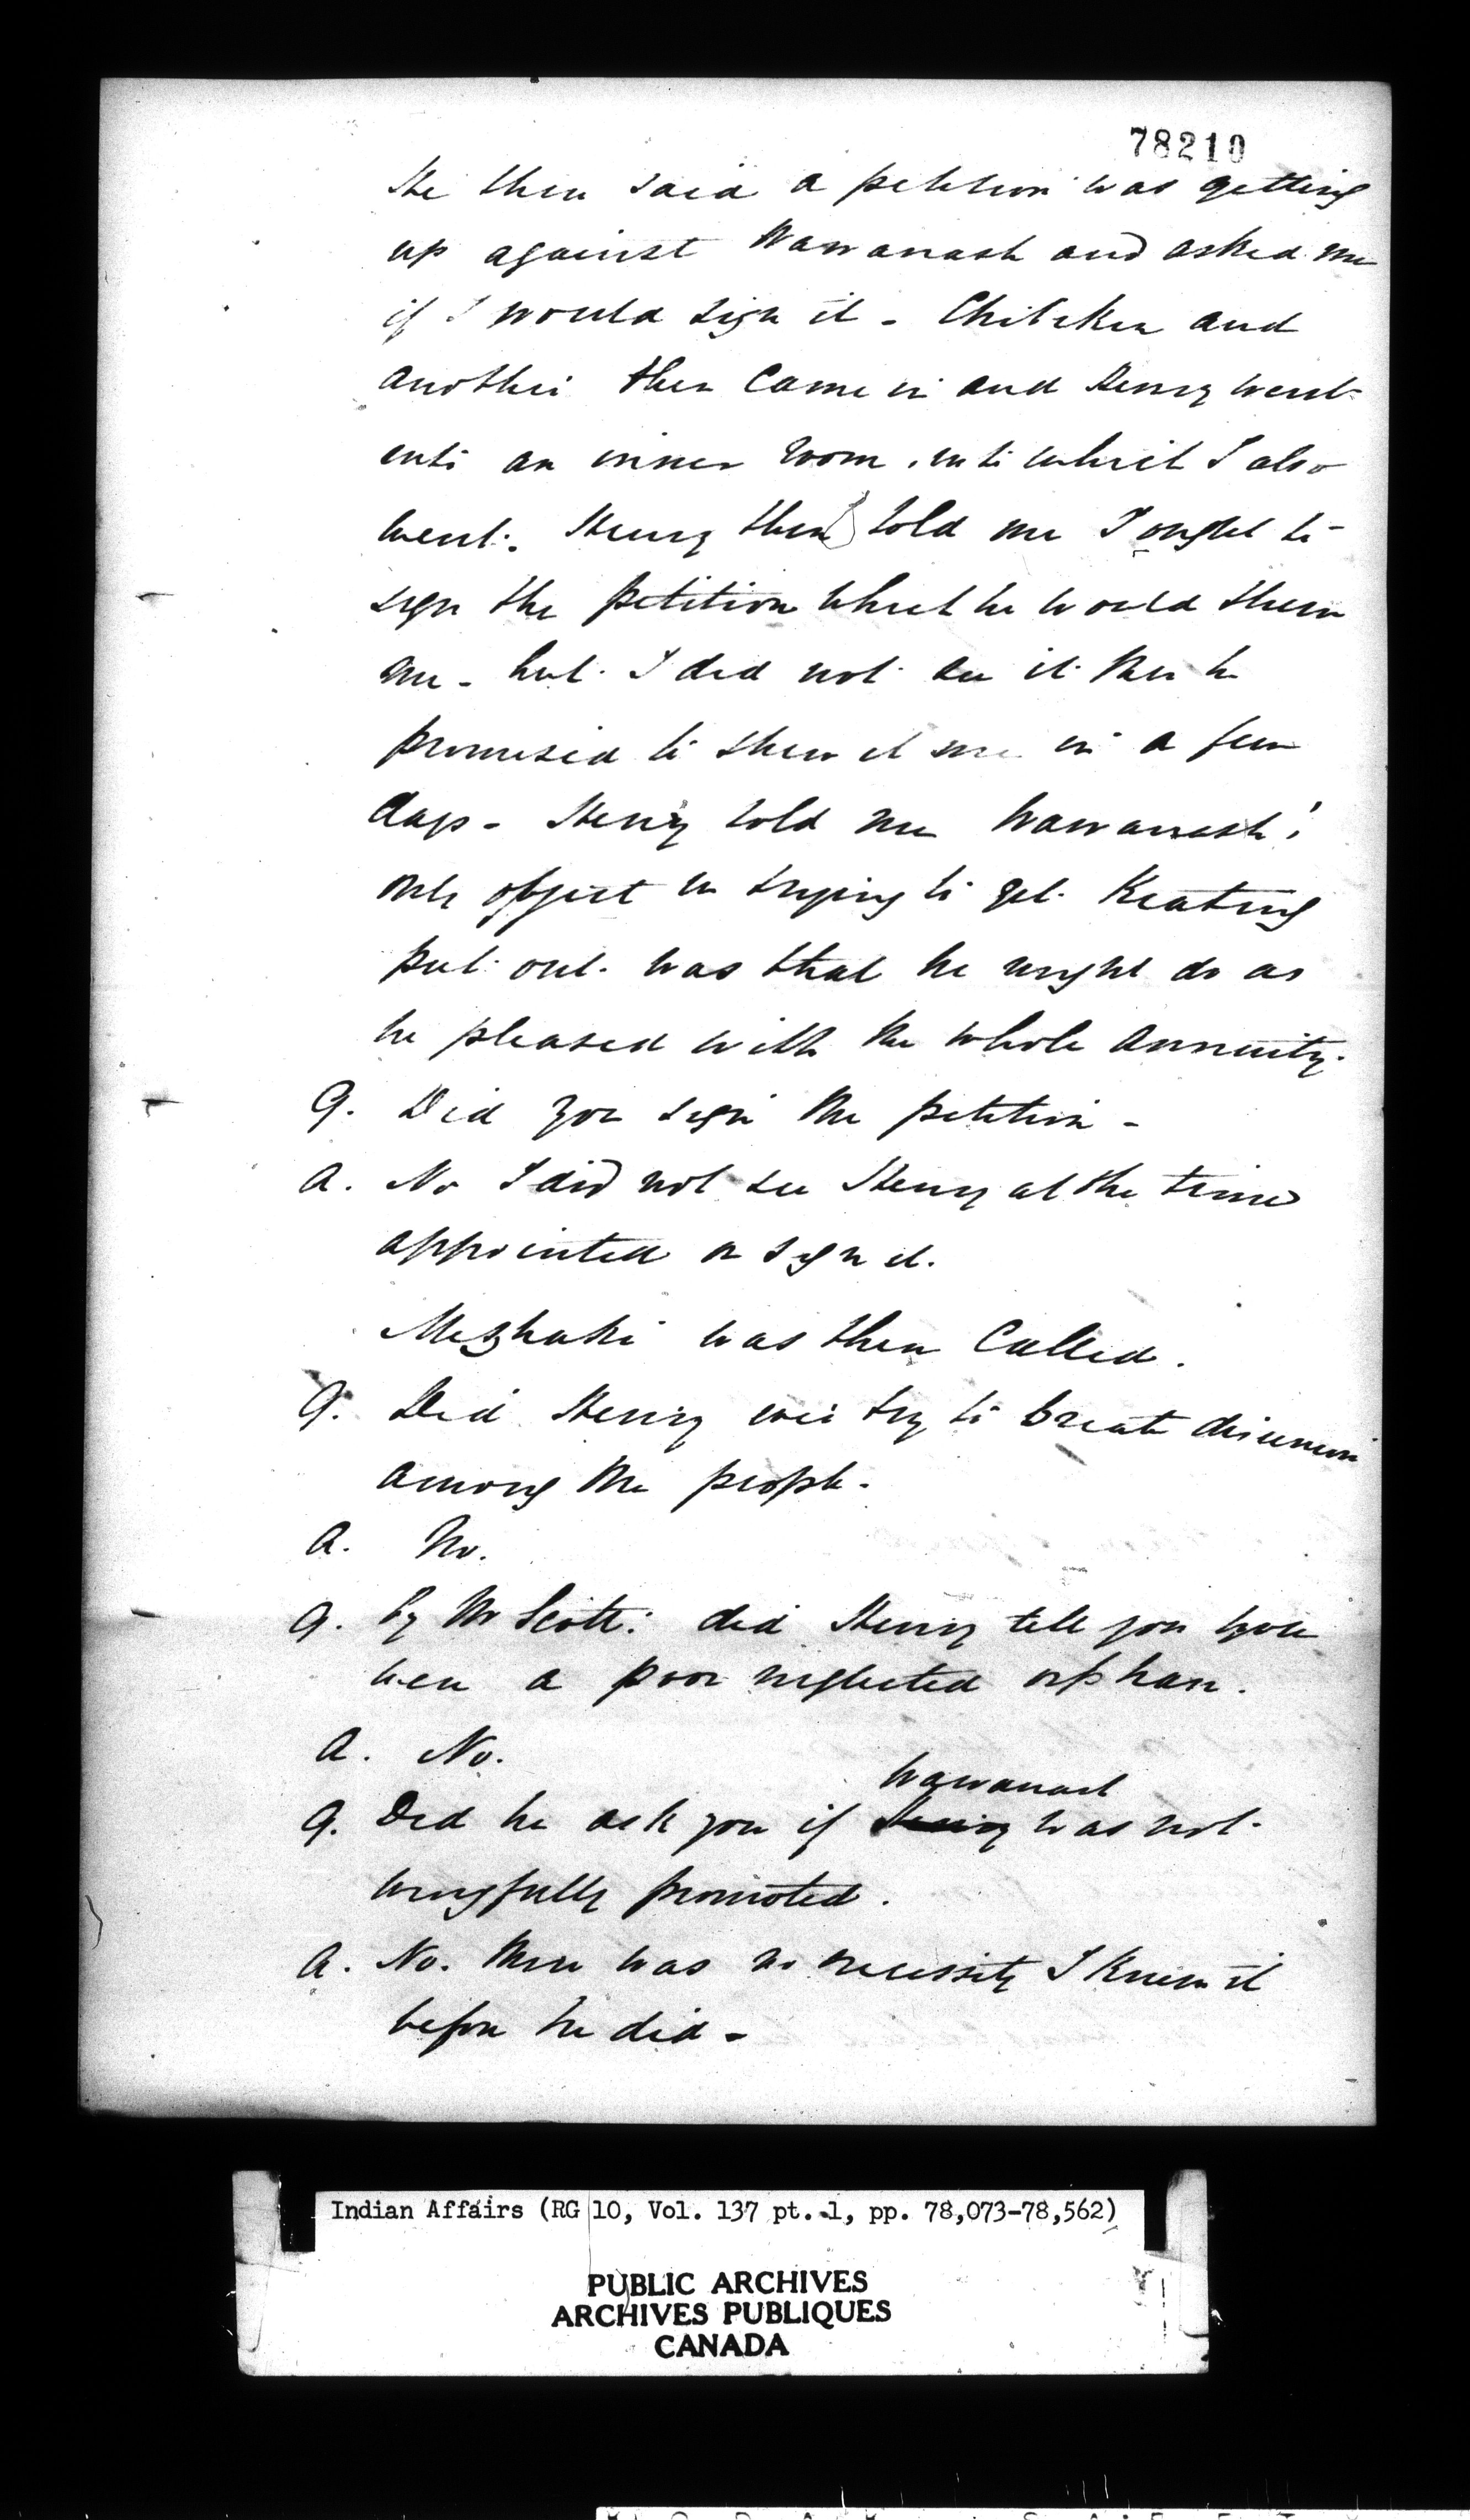 78210
He then said a petition was getting
up against Wawanash and asked me
if I would sign it - and
another then came in and Henry went
into an inner room, into which I also
went. Henry then told me I ought to
sign the petition which he would shew
me - but I did not see it then he
promised to shew it me in a few
days - Henry told me Wawanash's
only object in trying to get Keating
put out was that he might do as
he pleased with the whole annuity.
Q. Did you sign the petition -
A. No I did not see Henry at the time
appointed or sign it.
was then called.
Q. Did Henry ever try to create disunion
among the people -
A. No.
Q. by Mr Scott: did Henry tell you you
were a poor neglected orphan.
A. No.
Wawanash
Q. Did he ask you if Henry was not
wrongfully promoted.
A. No. there was no necessity I knew it
before he did -
Indian Affairs (RG 10, Vol. 137 pt. 1, pp. 78,073-78,562)
PUBLIC ARCHIVES
ARCHIVES PUBLIQUES
CANADA